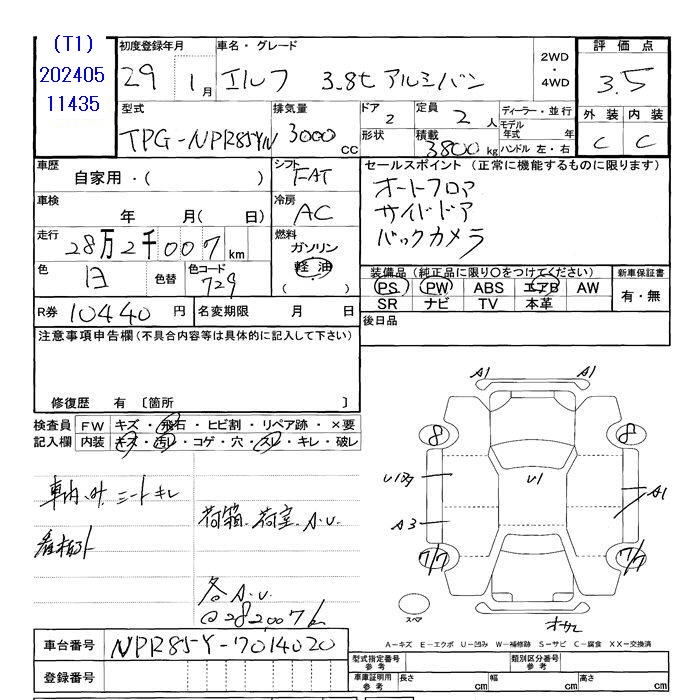 (T1)
202405
11435
初度登録年月
29 1月
車名・グレード
エルフ 3.8t アルミバン
2WD
・
4WD
評価点
3.5
外装 内装
C C
型式
TPG-NPR85YN
排気量
3000 cc
ドア
2
形状
定員
2 人
積載
3800 kg
ディーラー・並行
モデル
年式 年
ハンドル 左・右
車歴
自家用・( )
シフト
FAT
車検
年 月( 日)
冷房
AC
走行
28万2千007 km
燃料
ガソリン
軽油
( )
色
白
色替
色コード
729
R券 10440 円
名変期限 月 日
セールスポイント (正常に機能するものに限ります)
オートフロア
サイドドア
バックカメラ
装備品 (純正品に限り○をつけてください)
PS PW ABS エアB AW
SR ナビ TV 本革
新車保証書
有・無
後日品
注意事項申告欄 (不具合内容等は具体的に記入して下さい)
修復歴 有 〔箇所 〕
検査員
記入欄
FW キズ・飛石・ヒビ割・リペア跡・×要
内装 キズ・汚レ・コゲ・穴・スレ・キレ・破レ
シートキレ
荷箱、荷室 A.U.
各A.U.
@282007k
A1 A1
8 8
U1
A1
A3
7/7 7/7
スペア
A-キズ E-エクボ U-凹み W-補修跡 S-サビ C-腐食 XX-交換済
車台番号 NPR85Y-7014020
登録番号
型式指定番号
参考
類別区分番号
参考
車庫証明用
参考
長さ cm 幅 cm 高さ cm